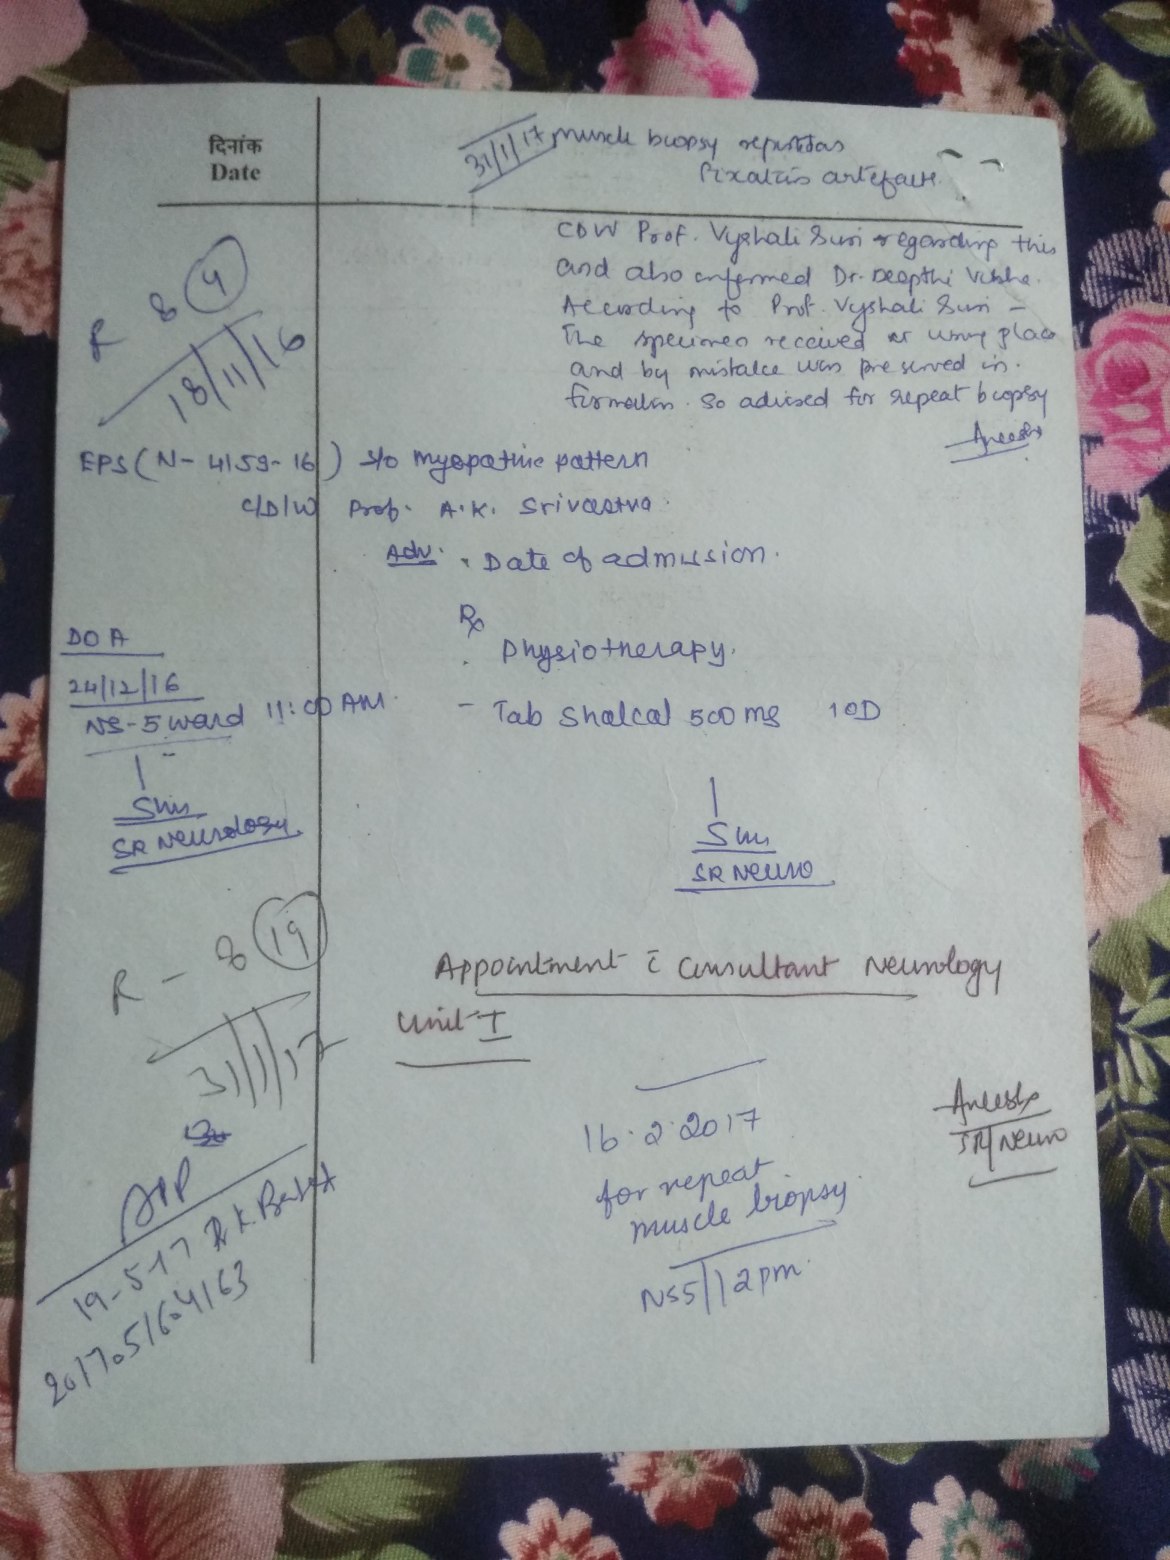 दिनांक
Date
31/1/17 Muscle biopsy
Fixation artefacts.
CDW Prof. Vyshali Suri regarding this
and also informed Dr. Deepthi Vibha.
According to Prof. Vyshali Suri -
The specimen received at wrong place
and by mistake was preserved in
formalin. So adviced for repeat biopsy
R 8 4
18/11/16
EPS (N-4159-16) s/o myopathic pattern
C/D/W Prof. A.K. Srivastva.
Adv. • Date of admission.
Rx
• Physiotherapy.
DOA
24/12/16
NS-5 ward 11:00 AM.
- Tab Shalcal 500 mg 1 OD
SR Neurology
SR Neuro
R - 8 19
31/1/17
Appointment c̄ Consultant Neurology
Unit-I
16.2.2017
for repeat
muscle biopsy.
NS5 || 2pm.
SR/Neuro
19-5-17